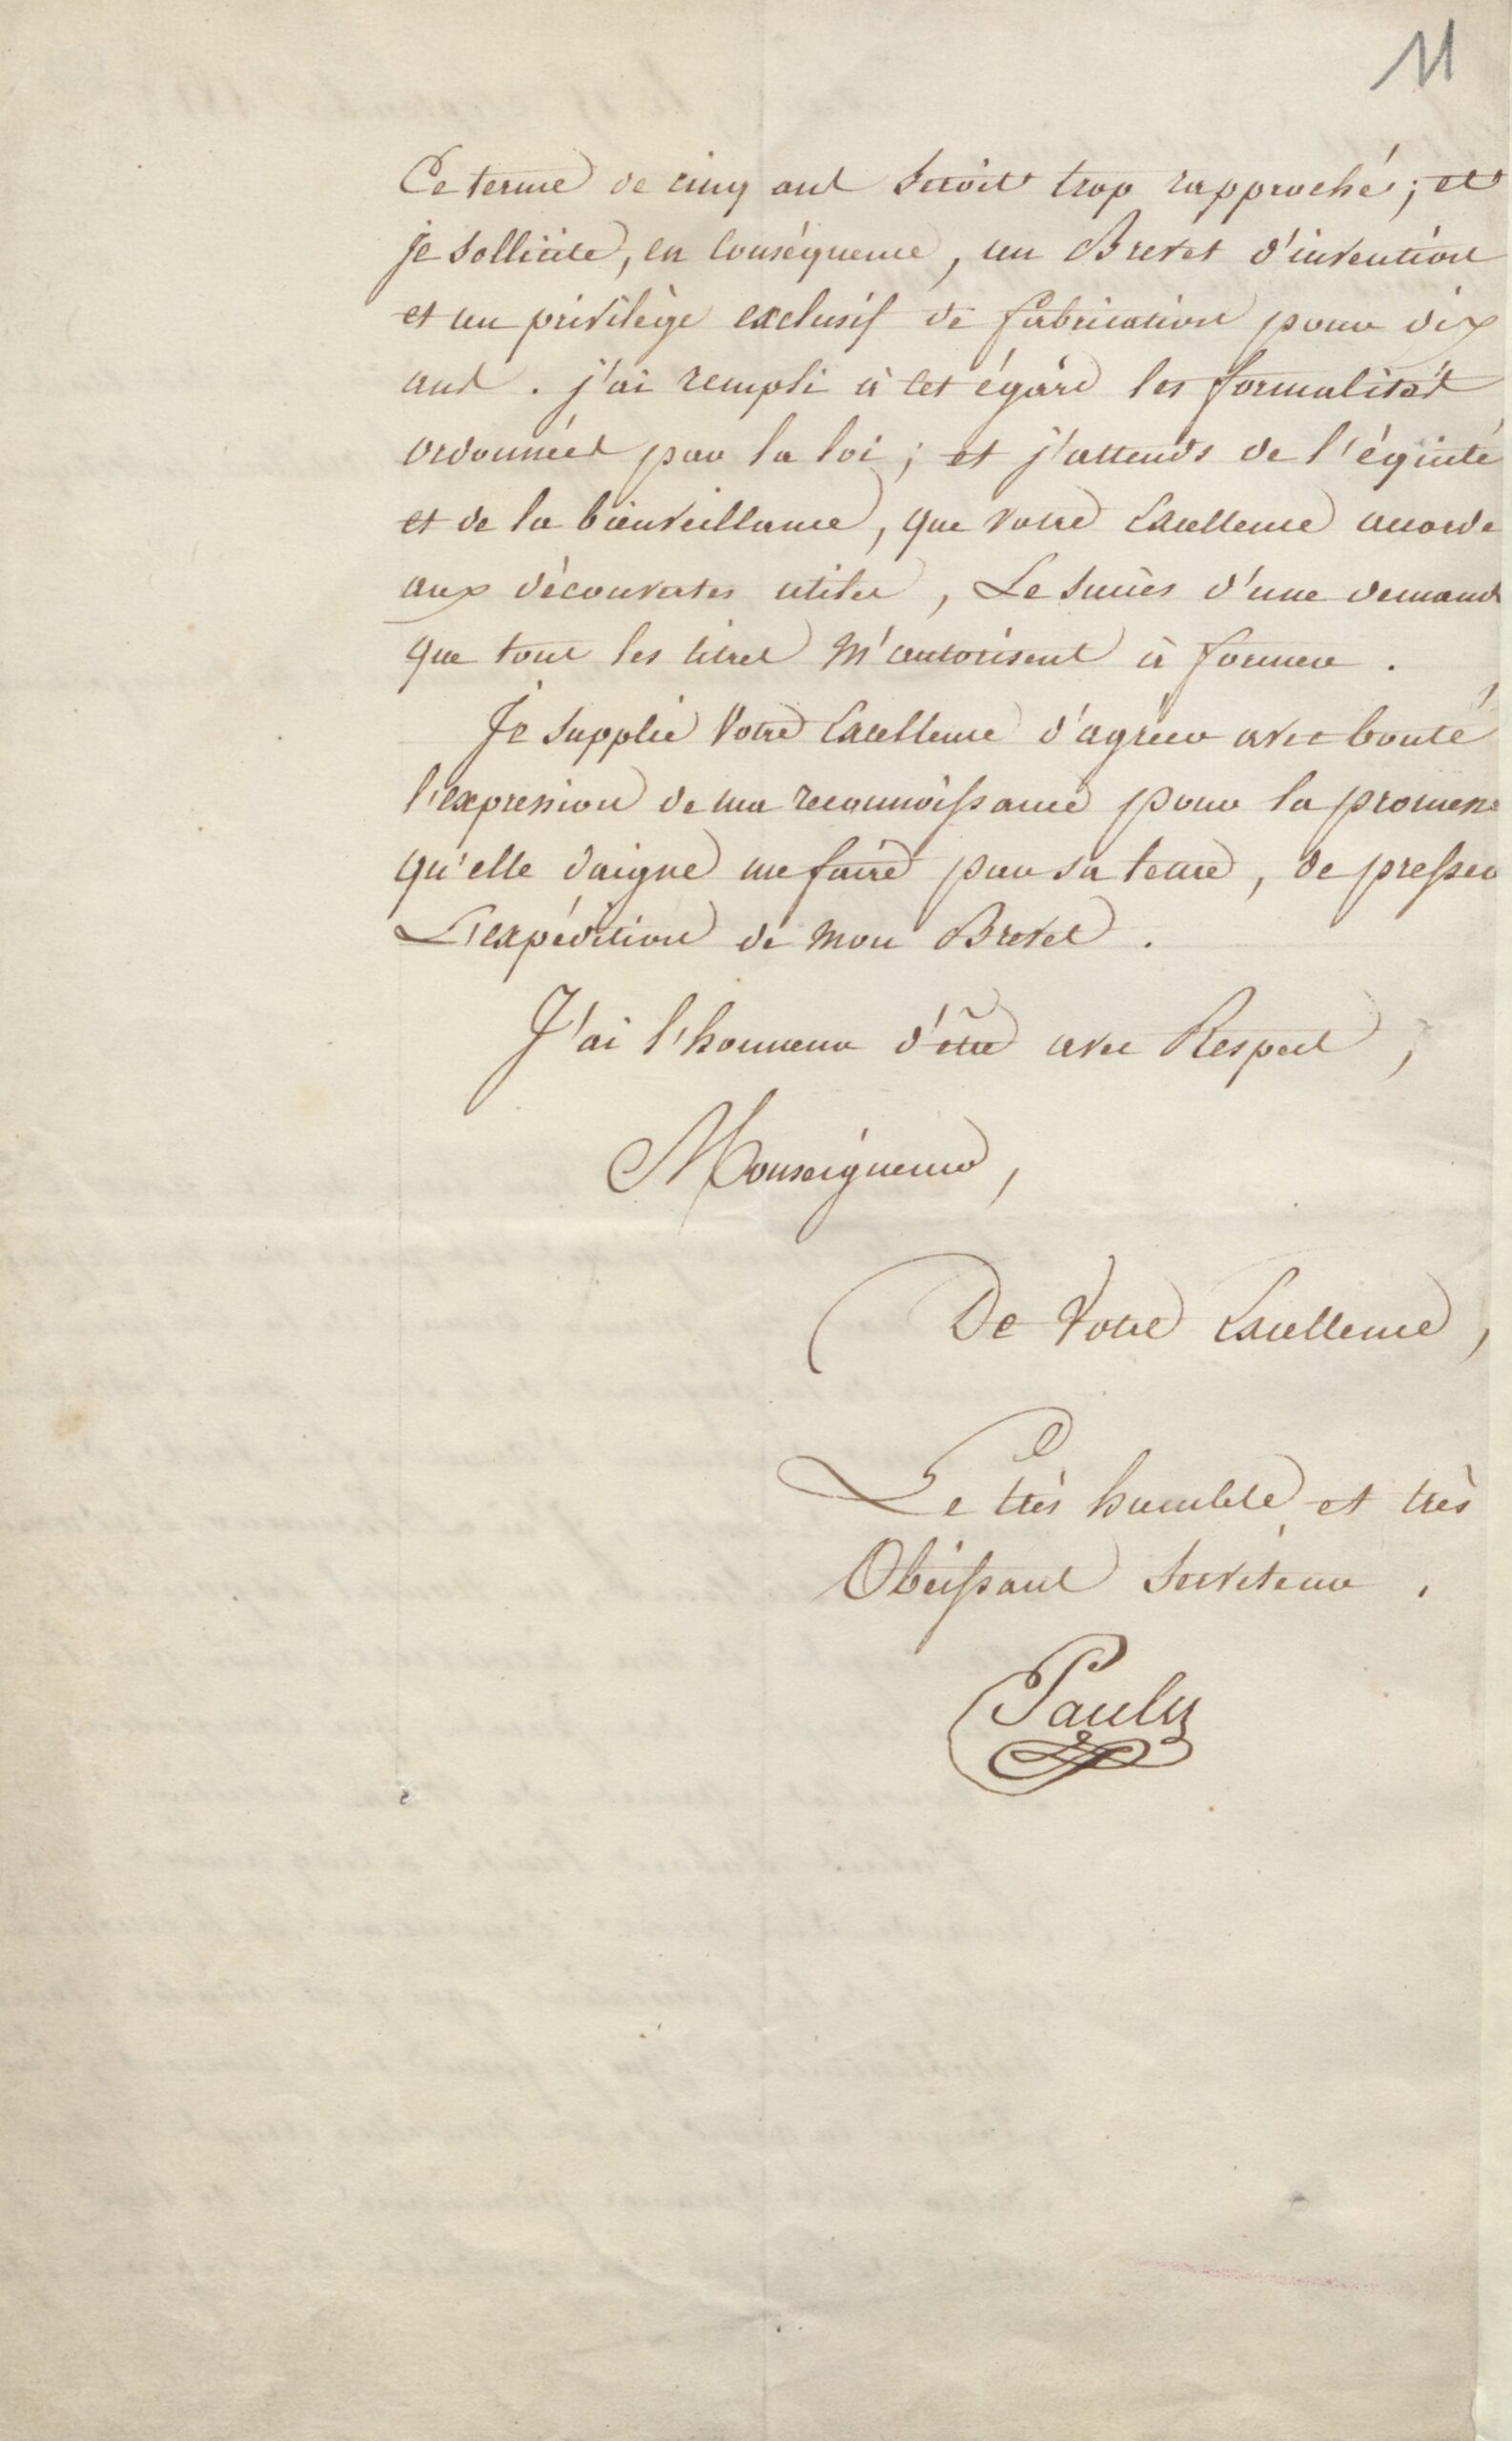 11
Ce terme de cinq ans seroit trop rapproché ; et
je sollicite, en conséquence, un Brevet d'invention
et un privilège exclusif de fabrication pour dix
ans . j'ai rempli à cet égard les formalités
ordonnées par la loi ; et j'attends de l'équité
et de la bienveillance, que votre Excellence accorde
aux découvertes utiles , Le succès d'une demande
que tous les titres m'autorisent à former .
Je supplie Votre Excellence d'agréer avec bonté
l'expression de ma reconnoissance pour la promesse
qu'elle daigne me faire par sa lettre, de presser
L'expédition de mon Brevet .
J'ai l'honneur d'être avec Respect ,
Monseigneur,
De Votre Excellence,
Le très humble et très
Obéissant Serviteur .
Pauly